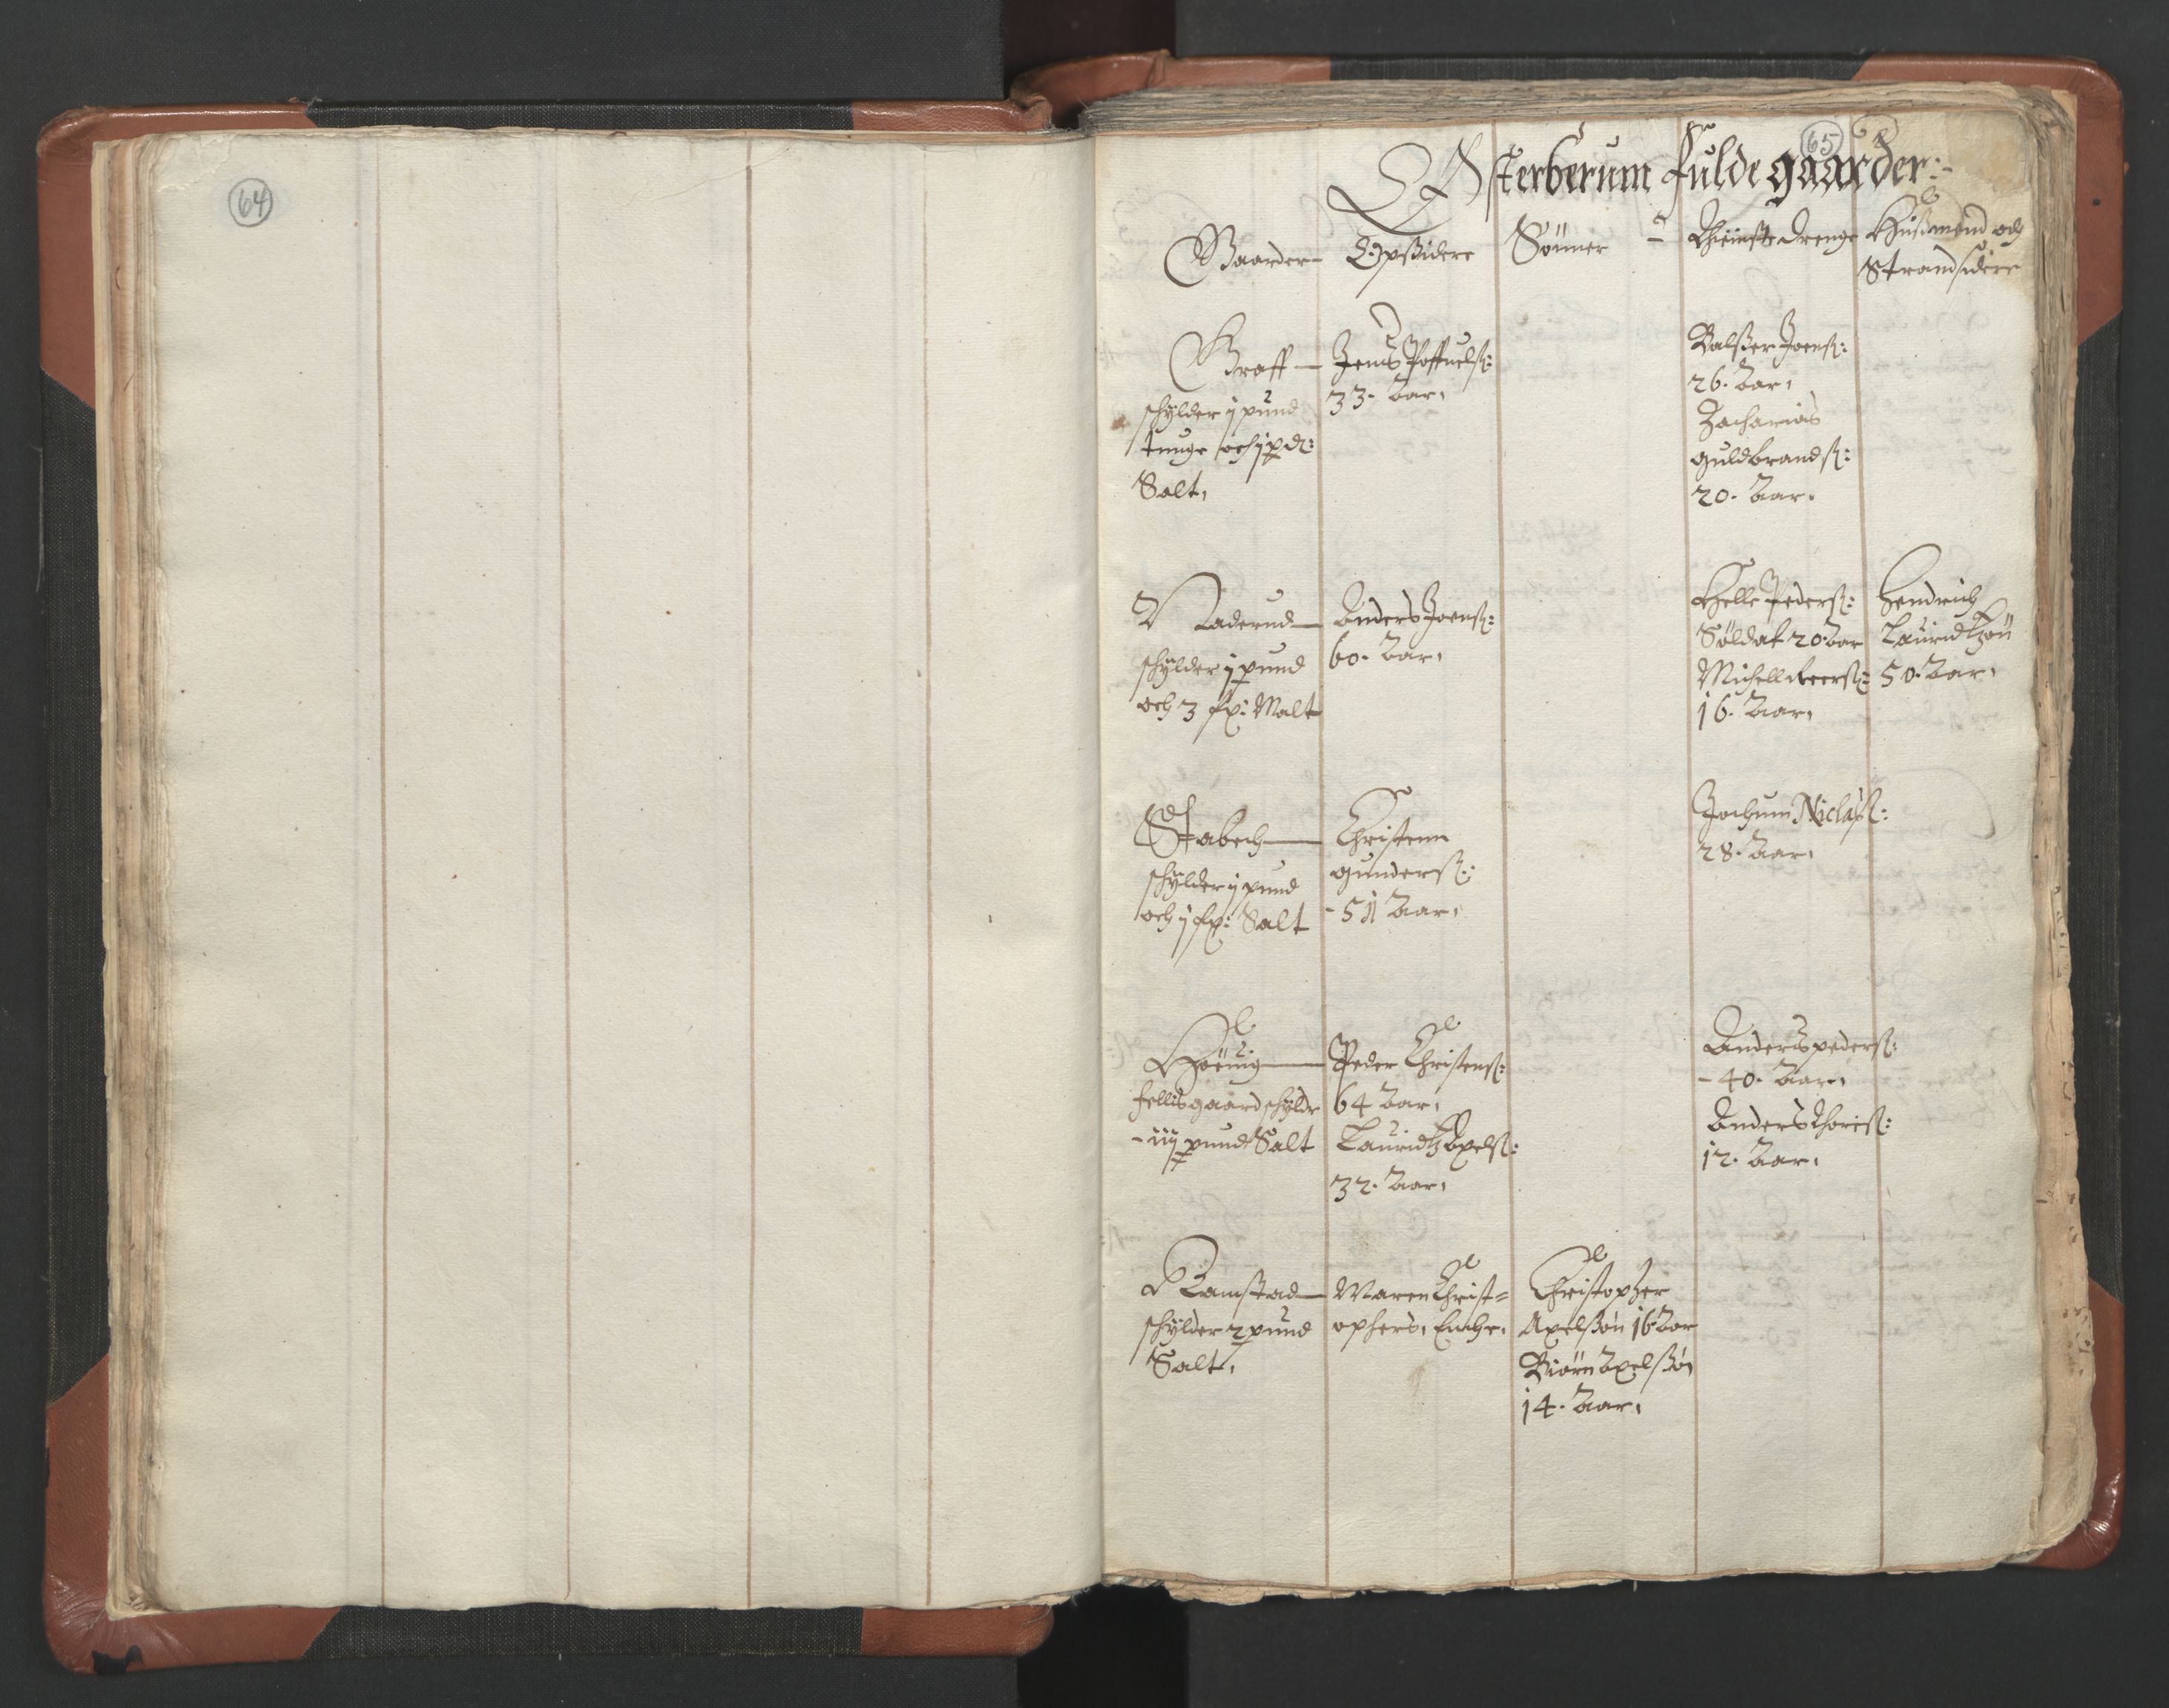 64
65
Østerberum fulde gaarder:
Gaarder Opsidere Sønner Thienste drenge Huusmend och
Strandsidere
Graff
schylder j pund
tunge och j pd:
Salt,
Jens Poffuels:
33. Aar,
Balzer Joens:
26. Aar,
Zacharias
Guldbrands:
20. Aar.
Naderud
schylder j pund
och 3 fr: Malt
Anders Joens:
60. Aar,
Helle Peders:
Søldat 20. Aar
Michell
16. Aar,
Hendrich
Lauridtzøn
50. Aar,
Stabech
schylder j pund
och j fr: Salt
Christenn
Gunderß:
- 51 Aar,
Jochum Niclaß:
28. Aar,
Høuig
fellis gaard schylder
- iij pund Salt
Peder Christens:
64 Aar,
Lauridtz Axels:
32. Aar,
Anders peders:
- 40. Aar,
Anders Thoris:
12. Aar,
Ramstad
schylder 2 pund
Salt,
Maren Christ=
ophers, Enche,
Christopher
Axelsøn 16 Aar
Biørn Axelsøn
14. Aar,